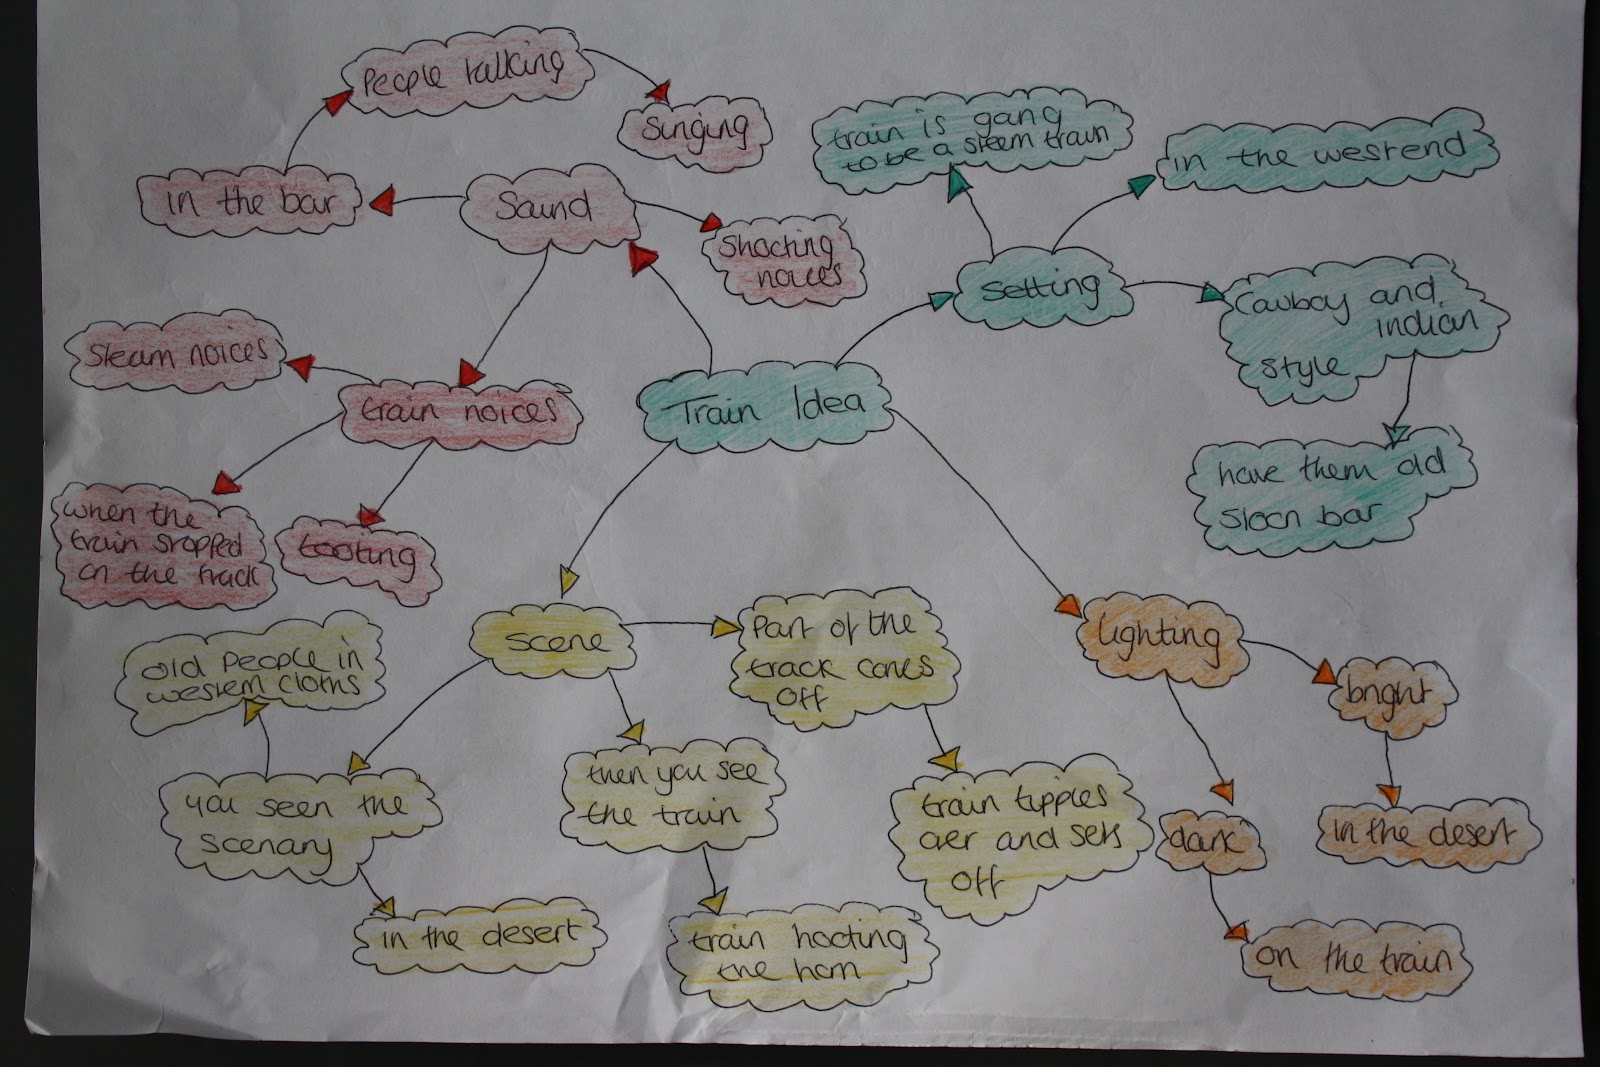 People talking
Singing
in the bar
Sound
Shooting
noices
Steam noices
train noices
when the
train stopped
on the track
tooting
Train Idea
train is going
to be a steem train
in the westend
Setting
Cowboy and
indian
style
have them old
sloon bar
Scene
old people in
western cloths
you seen the
scenary
in the desert
then you see
the train
train hooting
the horn
Part of the
track comes
off
train tipples
over and sets
off
lighting
bright
in the desert
dark
on the train